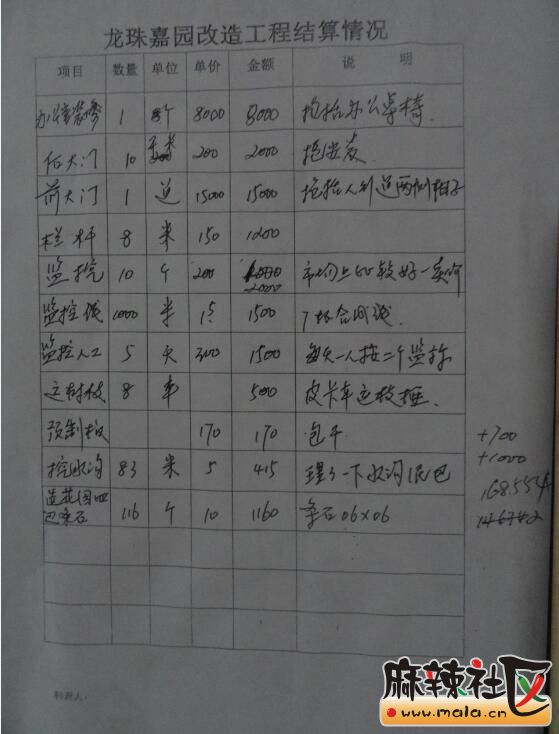 龙珠嘉园改造工程结算情况
项目 数量 单位 单价 金额 说 明
办公室装修 1 个 8000 8000 包括办公桌椅.
后大门 10 200 2000 包安装
前大门 1 道 15000 15000 包括人行道两侧柱子
栏杆 8 米 150 1200
监控 10 个 200 2000 市面上比较好一类的
监控线 1000 米 1.5 1500
监控人工 5 天 300 1500 每天一人按二个监控
运树枝 8 车 500 皮卡车运
预制板 170 170 包干
挖水沟 83 米 5 415 理了一下水沟泥巴
造花园四 116 个 10 1160 条石06×06
+700
+1000
制表人:
麻辣社区
www.mala.cn